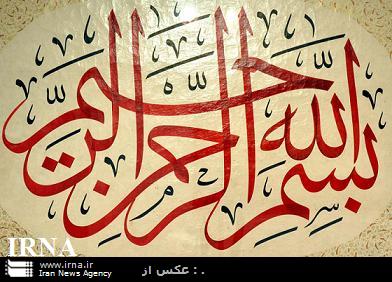 بسم الله الرحمن الرحیم
IRNA
www.irna.ir
Iran News Agency
عکس از : .